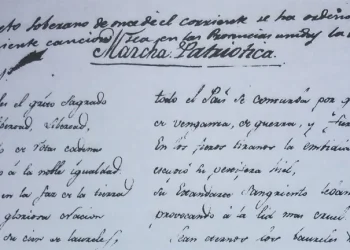 to Soberano de once del corriente se ha orden
iente cancion sea en las Provincias unidas la
Marcha Patriotica.
el grito Sagrado
libertad, libertad,
de rotas cadenas
á la noble igualdad.
en la faz de la tierra
gloriosa nacion
su cien de laureles
todo el Pais se conturba por g
de venganza, de guerra, y fu
En los fieros tiranos la embidia
escupió su pestifera hiel,
Su Estandarte Sangriento levan
provocando á la lid mas cruel
Sean eternos los laureles